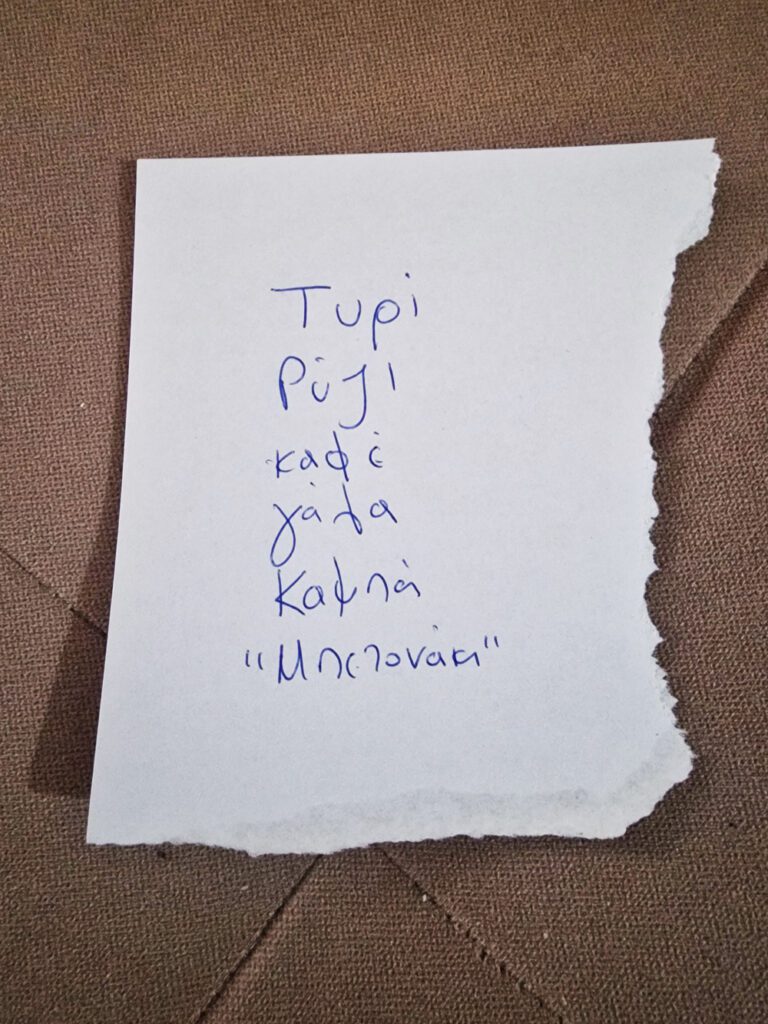 Τυρί
Ρύζι
καφέ
γάλα
Καψλά
"Μπετονάκι"